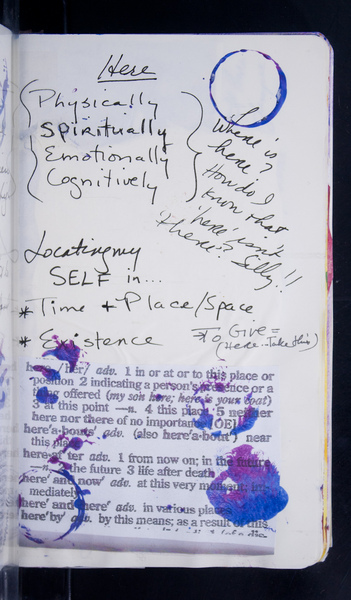 Here
Physically
Spiritually
Emotionally
Cognitively
Where is
here?
How do I
know that
'here' isn't
'there'? Silly!!
Locating my
SELF in...
* Time + Place/Space
* Existence
To Give =
(Here - Take this)
here /her/ adv. 1 in or at or to this place or
position 2 indicating a person's presence or a
thing offered (my son here; here is your coat)
3 at this point —n. 4 this place 5 neither
here nor there of no importance [OE]
here'a·bouts' adv. (also here'a·bout') near
this place
here·af'ter adv. 1 from now on; in the future
—n. the future 3 life after death
here' and now' adv. at this very moment; im-
mediately
here' and there' adv. in various places
here'by' adv. by this means; as a result of this